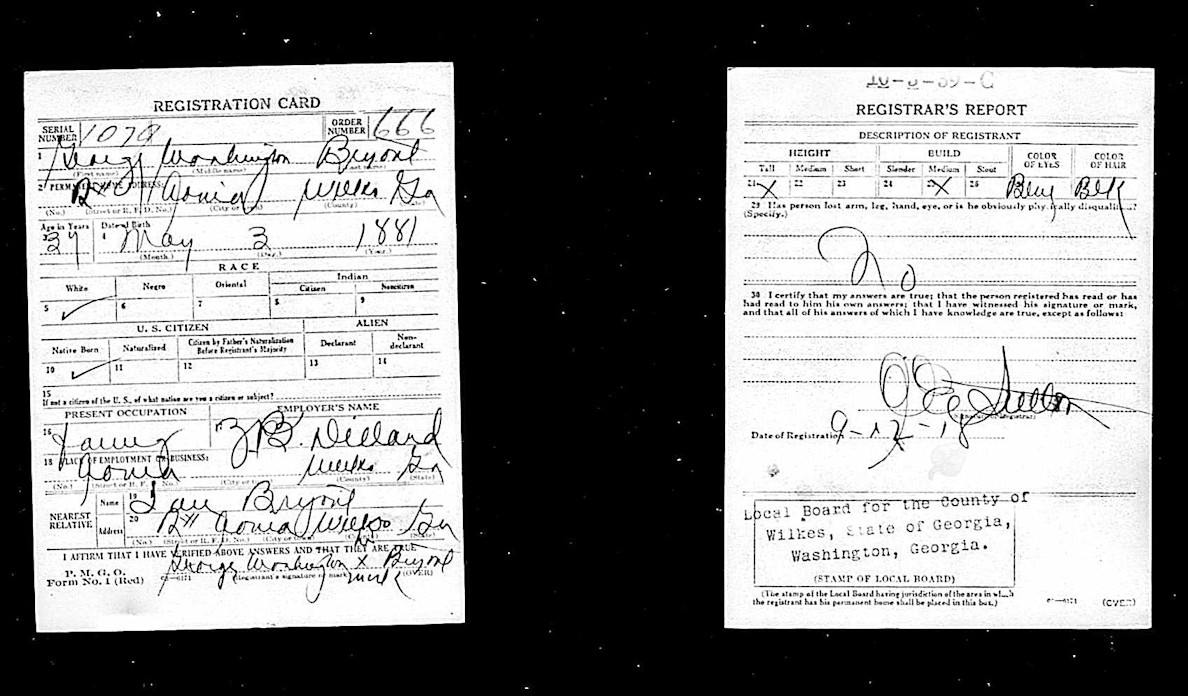 REGISTRATION CARD
SERIAL NUMBER 1079 ORDER NUMBER 666
1 George Washington Bryant
(First name) (Middle name) (Last name)
2 PERMANENT HOME ADDRESS:
Aonia Wilkes Ga
(No.) (Street or R. F. D. No.) (City or (County) (State)
Age in Years Date of Birth
3 37 4 May 3 1881
(Month.) (Day.) (Year.)
RACE
White Negro Oriental Indian
Citizen Noncitizen
5 ✓ 6 7 8 9
U. S. CITIZEN ALIEN
Native Born Naturalized Citizen by Father's Naturalization Before Registrant's Majority Declarant Non-declarant
10 ✓ 11 12 13 14
15
If not a citizen of the U. S., of what nation are you a citizen or subject?
PRESENT OCCUPATION EMPLOYER'S NAME
16 B. Dillard
18 PLACE OF EMPLOYMENT OR BUSINESS:
Aonia Wilkes Ga
(No.) (City or (County) (State)
NEAREST RELATIVE Name 19 Bryant
Address 20 Aonia Wilkes Ga
(No.) (Street or R. F. D. No.) (City or (State)
I AFFIRM THAT I HAVE VERIFIED ABOVE ANSWERS AND THAT THEY ARE TRUE
P. M. G. O.
Form No. 1 (Red) George Washington x Bryant
(Registrant's signature or mark) mark (OVER)
10-3-39-C
REGISTRAR'S REPORT
DESCRIPTION OF REGISTRANT
HEIGHT BUILD COLOR OF EYES COLOR OF HAIR
Tall Medium Short Slender Medium Stout
21 X 22 23 24 25 X 26 Blk
29 Has person lost arm, leg, hand, eye, or is he obviously physically disqualified?
(Specify.)
No
30 I certify that my answers are true; that the person registered has read or has
had read to him his own answers; that I have witnessed his signature or mark,
and that all of his answers of which I have knowledge are true, except as follows:
(Signature of Registrar)
Date of Registration 9-12-18
Local Board for the County of
Wilkes, State of Georgia,
Washington, Georgia.
(STAMP OF LOCAL BOARD)
(The stamp of the Local Board having jurisdiction of the area in which
the registrant has his permanent home shall be placed in this box.)
(OVER)